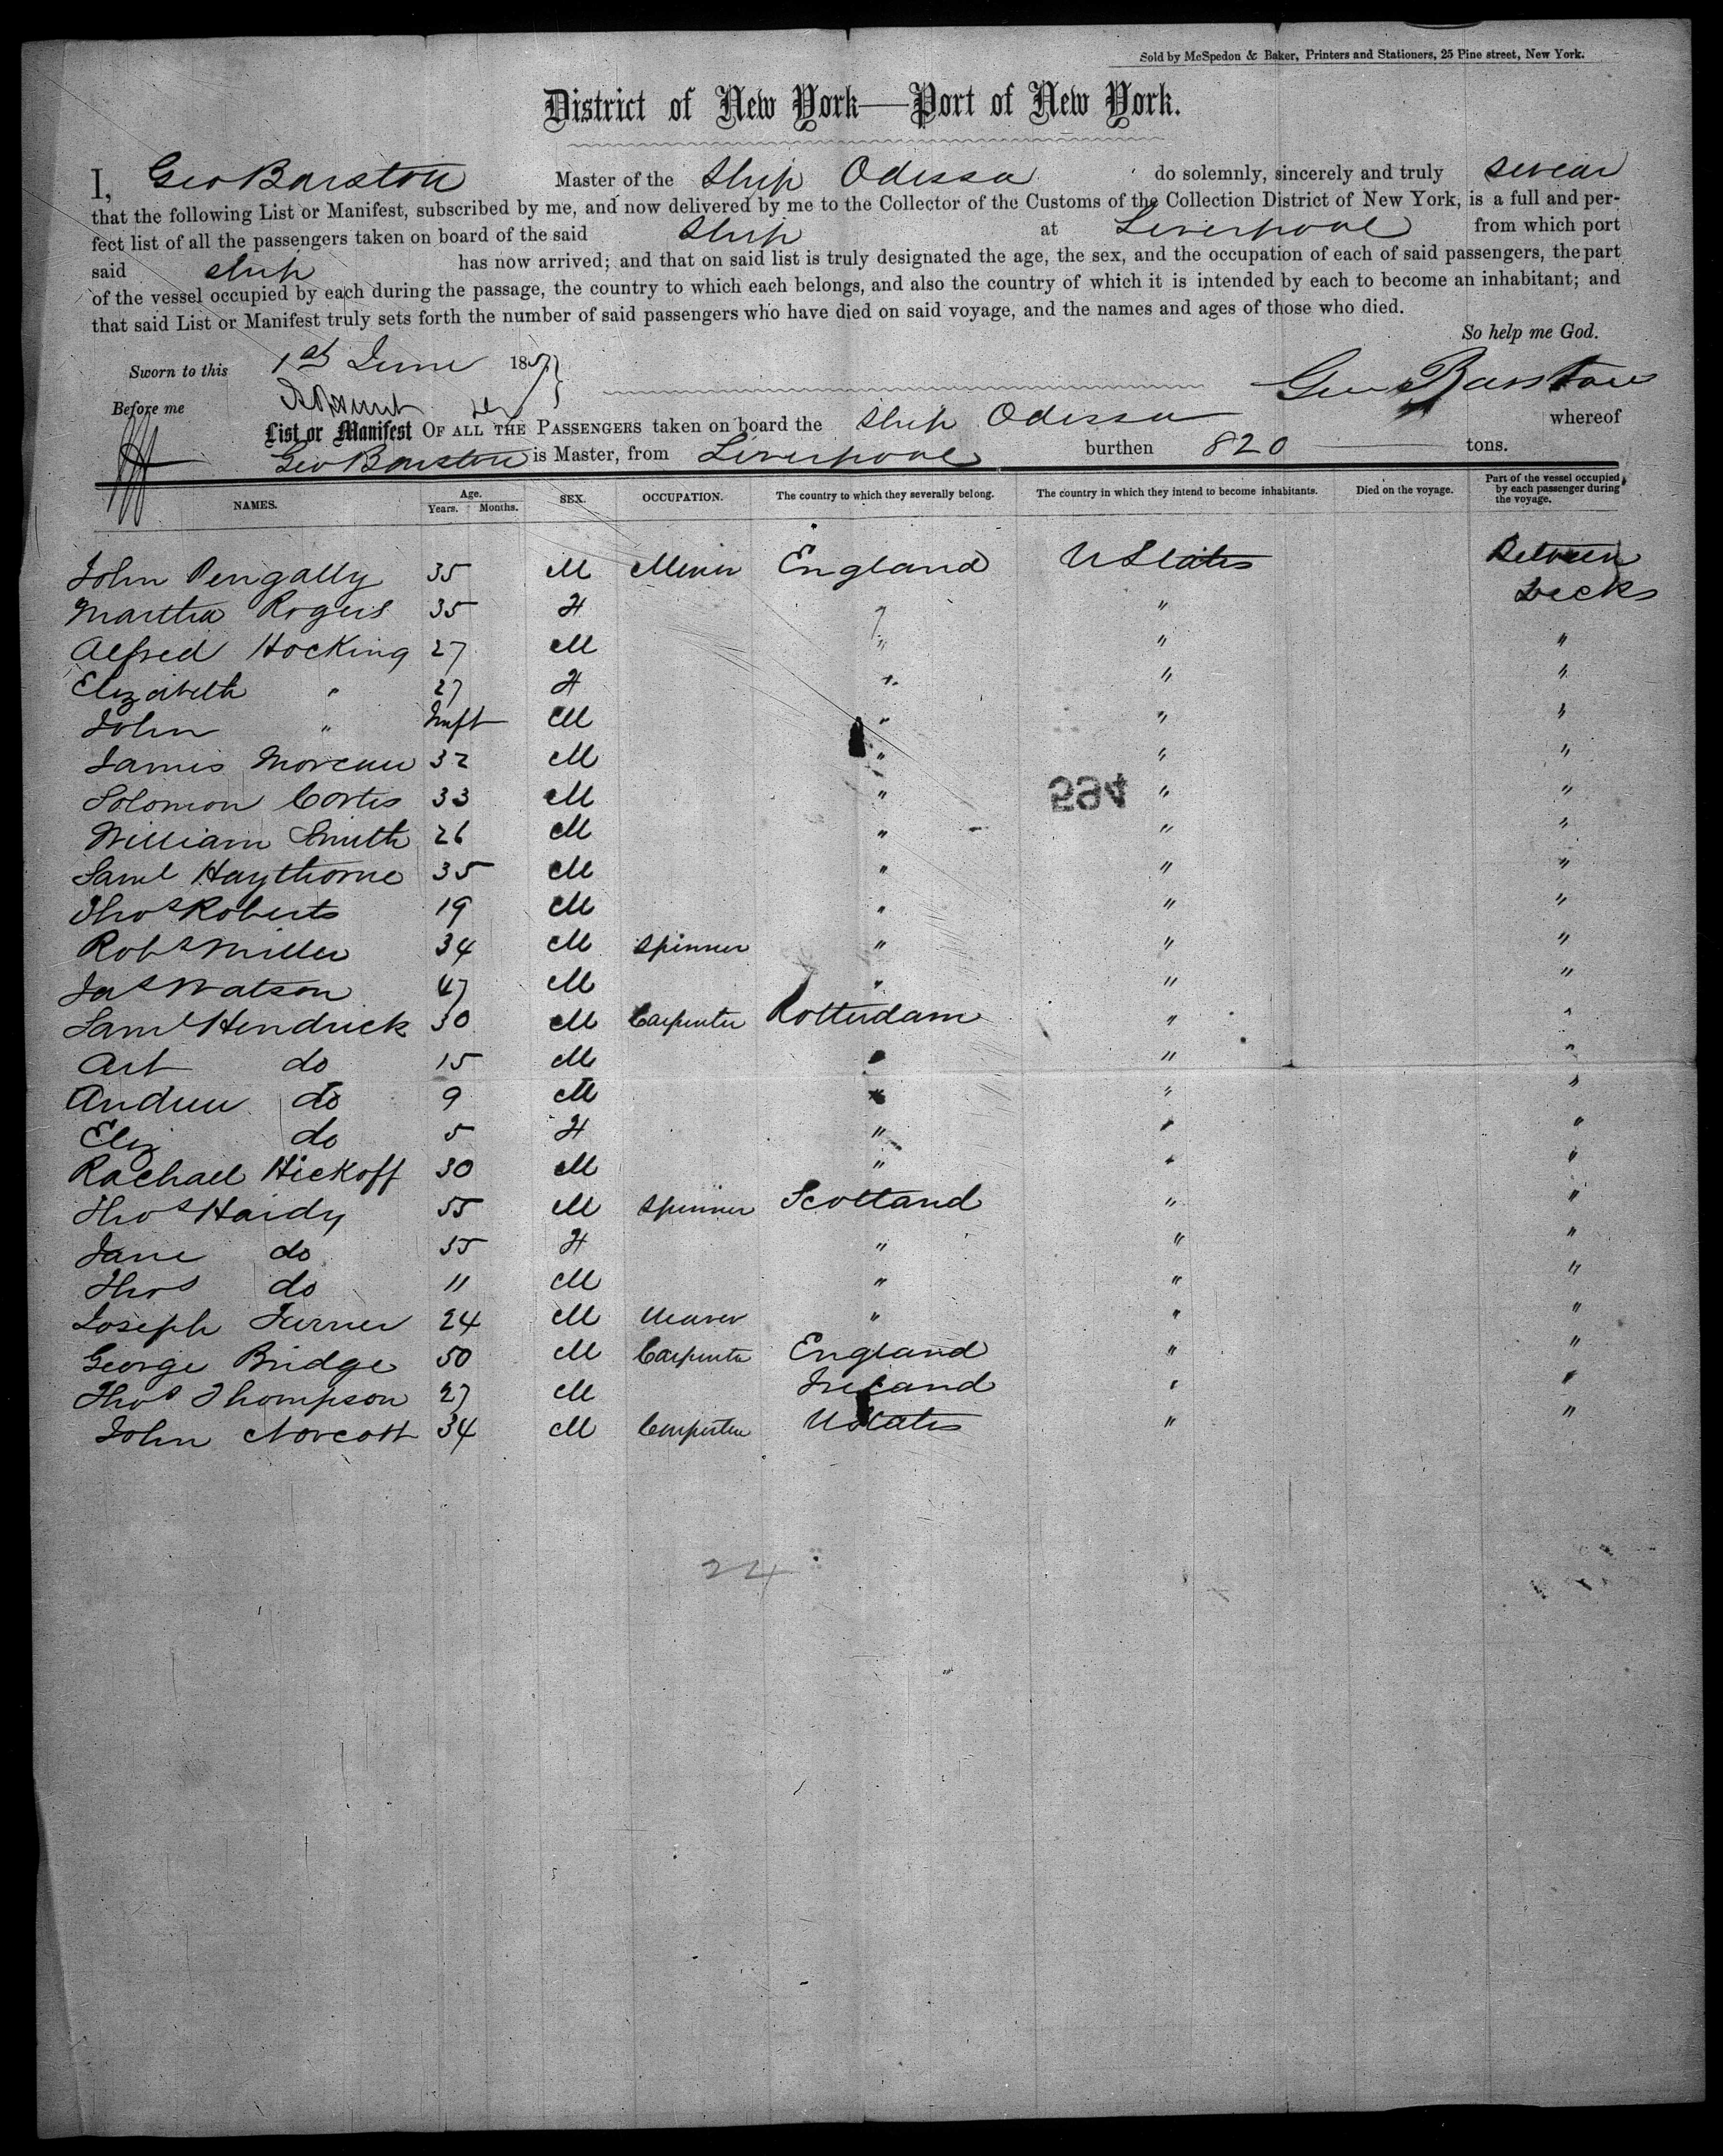 Sold by McSpedon & Baker, Printers and Stationers, 25 Pine street, New York.
District of New York—Port of New York.
I, Geo Barstow Master of the Ship Odessa do solemnly, sincerely and truly swear
that the following List or Manifest, subscribed by me, and now delivered by me to the Collector of the Customs of the Collection District of New York, is a full and per-
fect list of all the passengers taken on board of the said Ship at Liverpool from which port
said ship has now arrived; and that on said list is truly designated the age, the sex, and the occupation of each of said passengers, the part
of the vessel occupied by each during the passage, the country to which each belongs, and also the country of which it is intended by each to become an inhabitant; and
that said List or Manifest truly sets forth the number of said passengers who have died on said voyage, and the names and ages of those who died.
So help me God.
Sworn to this 1st June 185
Geo Barstow
Before me
List or Manifest OF ALL THE PASSENGERS taken on board the Ship Odessa whereof
Geo Barstow is Master, from Liverpool burthen 820 tons.
NAMES. Age. Years. Months. SEX. OCCUPATION. The country to which they severally belong. The country in which they intend to become inhabitants. Died on the voyage. Part of the vessel occupied by each passenger during the voyage.
John Pengally 35 M Miner England U States Between
Martha Rogers 35 F " " Decks
Alfred Hocking 27 M " " "
Elizabeth " 27 F " " "
John " Inft M " " "
James Moreau 32 M " " "
Solomon Cortis 33 M " 284 " "
William Smith 26 M " " "
Saml Haythorne 35 M " " "
Thos Roberts 19 M " " "
Robt Miller 34 M Spinner " " "
Jas Watson 47 M " " "
Saml Hendrick 30 M Carpenter Rotterdam " "
Art do 15 M " " "
Andrew do 9 M " " "
Eliz do 5 F " " "
Rachael Hickoff 30 M " " "
Thos Hardy 55 M Spinner Scotland " "
Jane do 55 F " " "
Thos do 11 M " " "
Joseph Turner 24 M Weaver " " "
George Bridge 50 M Carpenter England " "
Thos Thompson 27 M Ireland " "
John Norcott 34 M Carpenter U States " "
24